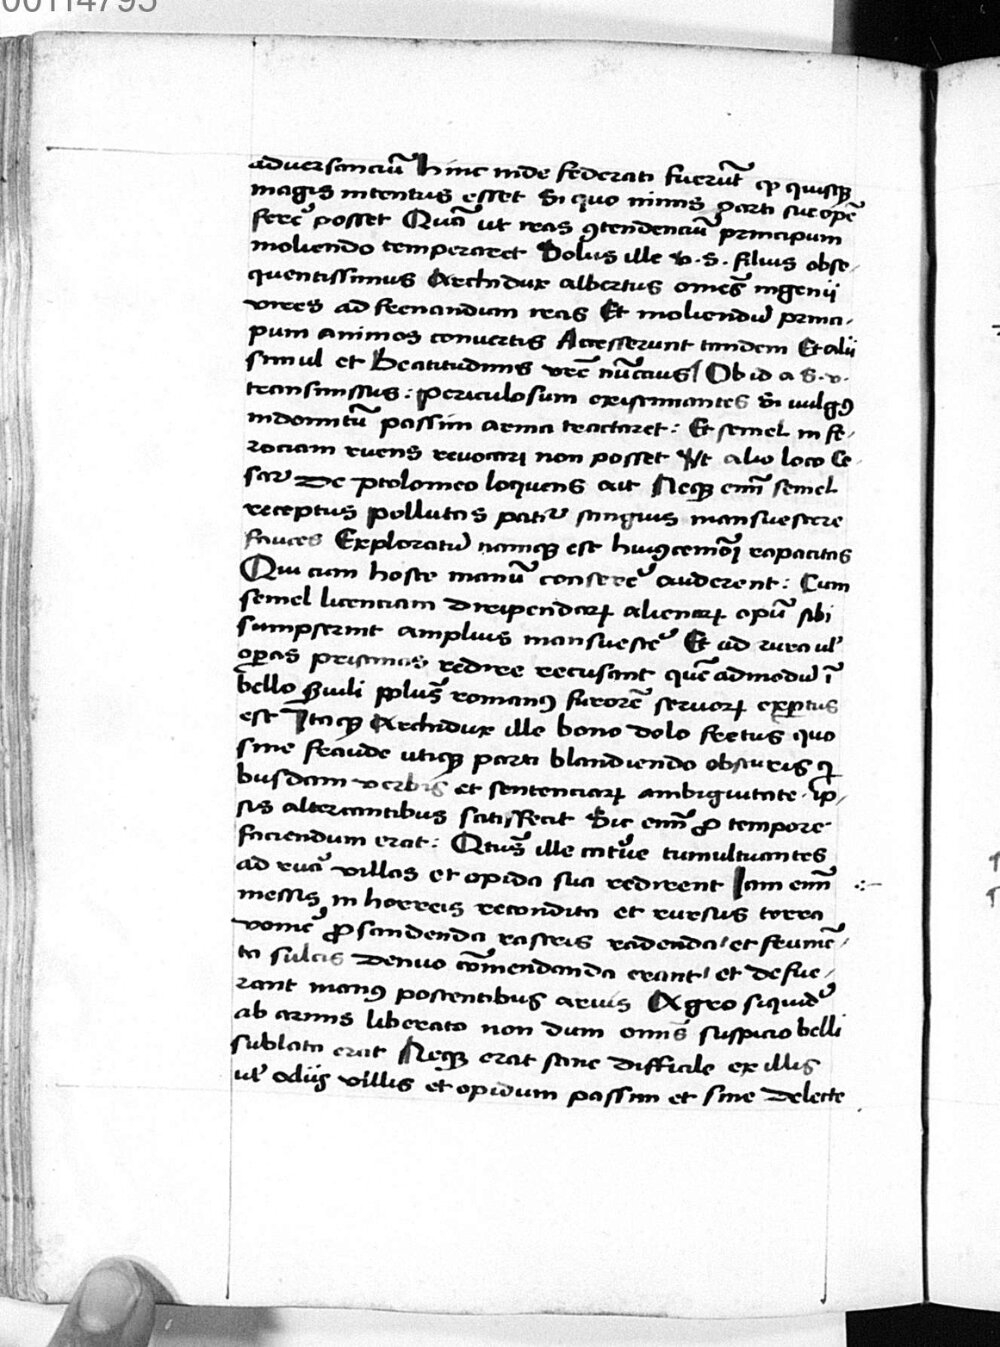 00114795
aduersanciū hinc inde federati fuerūt ꝙ quisqꝫ
magis intentus esset Si quo minus parti sue opē
ferre posset Quā ut reas ꝯtendenciū principum
moliendo temperaret Solus ille v. S. filius obse-
quentissimus Archidux albertus omēs ingenij
vires ad frenandum reas Et moliendū princi-
pum animos conuertis Accesserunt tandem Et alij
simul et Beatitudinis vrē nūctius Ob id a S. v.
transmissus: periculosum existimantes Si uulgꝰ
indomitū passim arma tractaret: Et semel in fe-
rociam ruens reuocari non posset Vt alio loco Ce-
sar De ptolomeo loquens ait Neqꝫ enī semel
receptus pollutas patiᵉ sanguis mansuescere
fauces Exploratū namqꝫ est huiꝰcemōi rapacitas
Qui cum hoste manū conserē auderent: Cum
semel licenciam diripiendarꝝ alienarꝝ opū sibi
sumpserint amplius mansuescē Et ad rura ul'
oꝑas pristinas redire recusant quē admodū ī
bello Siuili pplūs romanꝰ furorē seruorꝝ exꝑtus
est Itaqꝫ Archidux ille bono dolo fretus quo
sine fraude utiqꝫ parti blandiendo obscuris q̄
busdam verbis et sentenciarꝝ ambiguitate ip-
sis altercantibus satisfecit Sic enī ꝓ tempore
faciendum erat: Qtūs ille catue tumultuantes
ad ruā villas et opida sua redirent Iam enī
messis in horreis recondita et rursus terra
vomē ꝓscindenda rastris radenda et frumē-
ta sulcis denuo cōmendanda erant et defue-
rant manꝰ poscentibus aruis Agro siquidē
ab armis liberato non dum omīs suspicio belli
sublata erat Neqꝫ erat sane difficile ex illis
ul' odijs villis et opidum passim et sine delecte